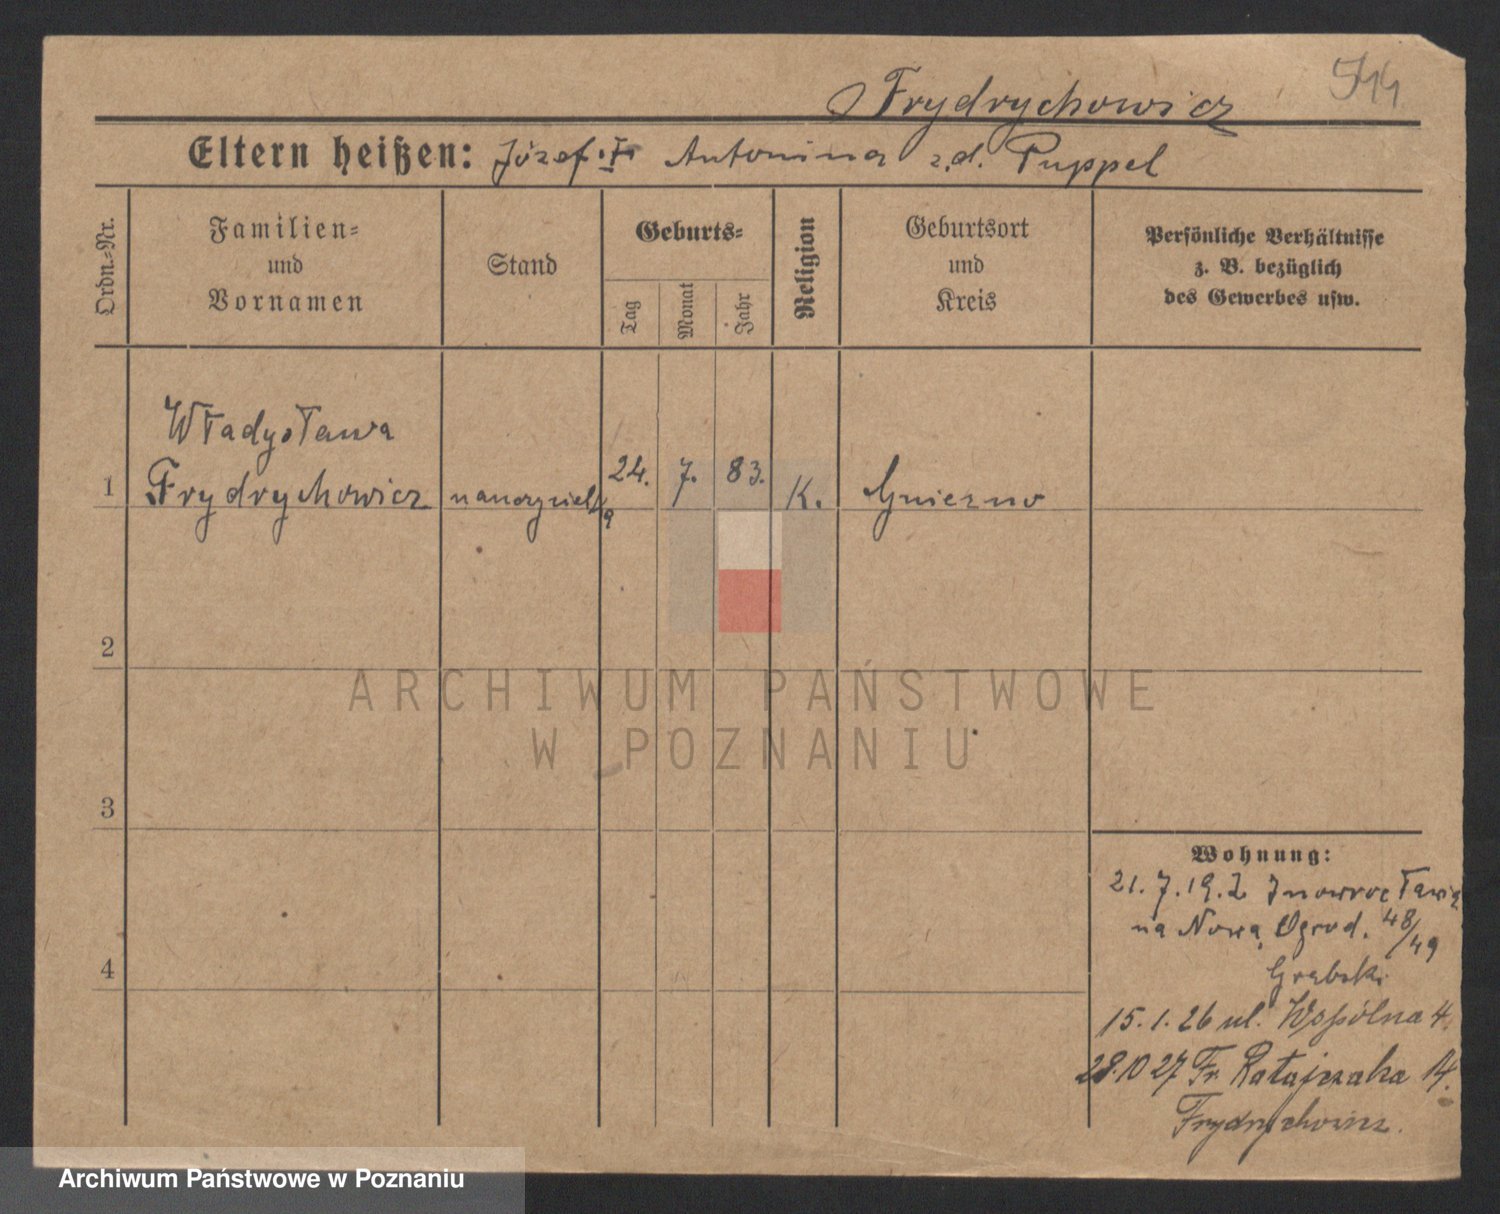 Frydrychowicz
Eltern heißen: Józef. Antonina z.d. Puppel
Ordn.-Nr.
Familien-
und
Vornamen
Stand
Geburts-
Tag
Monat
Jahr
Religion
Geburtsort
und
Kreis
Persönliche Verhältnisse
z. B. bezüglich
des Gewerbes usw.
Władysława
1 Frydrychowicz 24. 7. 83. K. Gniezno
2
ARCHIWUM PAŃSTWOWE
W POZNANIU
3
Wohnung:
21.7.19. z Inowrocławia
na Nową Ogrod. 48/49
4
Grabski
15.1.26 ul. Wspólna 4.
28.10 27 Fr. Ratajczaka 14.
Frydrychowicz.
Archiwum Państwowe w Poznaniu